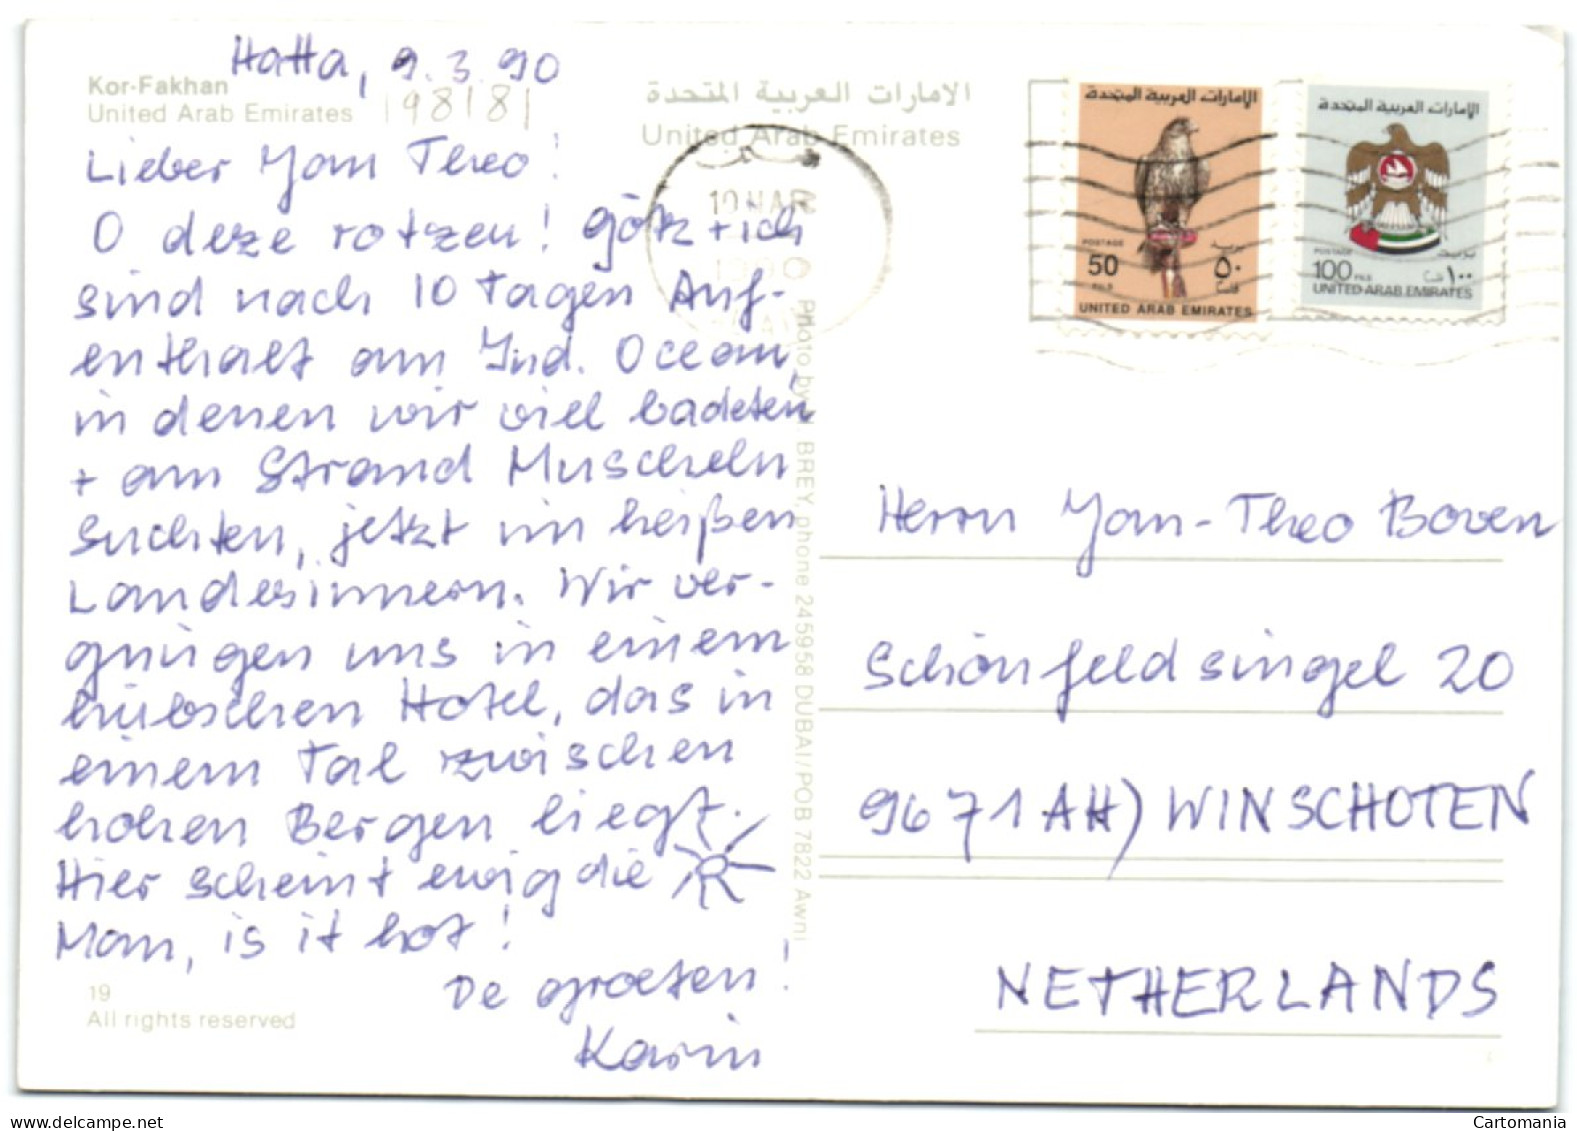 Hatta, 9.3.90
Kor-Fakhan
United Arab Emirates
98181
Lieber Jan Theo!
O deze rotzen! Götz + ich
sind nach 10 Tagen Auf-
enthalt am Ind. Ocean,
in denen wir viel badeten
+ am Strand Muscheln
suchten, jetzt im heißen
Landesinnern. Wir ver-
gnügen uns in einem
hübschen Hotel, das in
einem Tal zwischen
hohen Bergen liegt.
Hier scheint ewig die
Man, is it hot!
De groeten!
Karin
19
All rights reserved
الامارات العربية المتحدة
United Arab Emirates
10 MAR
1990
Photo by BREY, phone 245958 DUBAI/POB 7822 Awni
الإمارات العربية المتحدة
POSTAGE
50
FILS
بريد
٥٠
فلسا
UNITED ARAB EMIRATES
الإمارات العربية المتحدة
POSTAGE
100 FILS
بريد
١٠٠
UNITED ARAB EMIRATES
Herrn Jan-Theo Boven
Schönfeldsingel 20
9671 AH) WINSCHOTEN
NETHERLANDS
www.delcampe.net
Cartomania